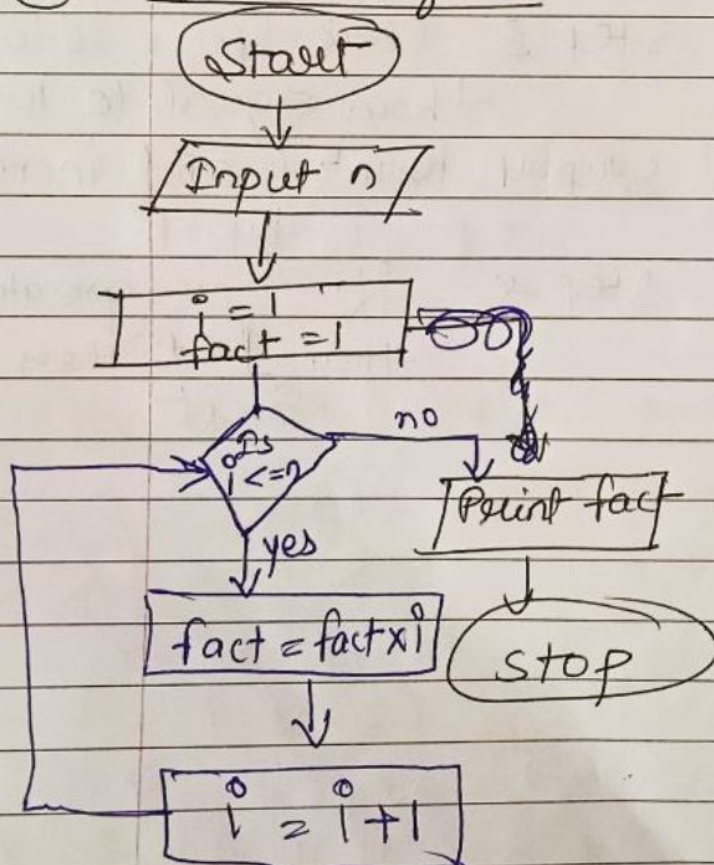 Start
Input n
i = 1
fact = 1
Is
i <= n
no
Print fact
yes
fact = fact x i
stop
i = i + 1